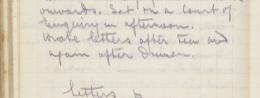 onwards. Sat on a Court of
Enquiry in afternoon.
Wrote letters after tea and
again after dinner.
letters